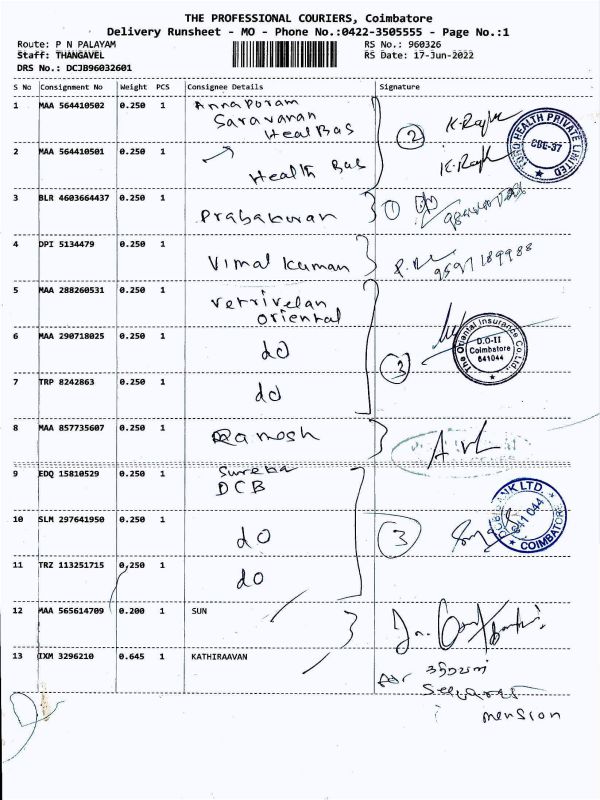 THE PROFESSIONAL COURIERS, Coimbatore
Delivery Runsheet - MO - Phone No.:0422-3505555 - Page No.:1
Route: P N PALAYAM RS No.: 960326
Staff: THANGAVEL RS Date: 17-Jun-2022
DRS No.: DCJB96032601
S No Consignment No Weight PCS Consignee Details Signature
1 MAA 564410502 0.250 1 Annaporam
Saravanan
Heal Bas
K. Rajk
2
HEALTH PRIVATE LIMITED
CBE-37
2 MAA 564410501 0.250 1 Health Bas
K. Rajk
3 BLR 4603664437 0.250 1 Prabakaran
1
4 DPI 5134479 0.250 1 Vimal Kuman
9597189988
5 MAA 288260531 0.250 1 Vetrivelan
oriental
6 MAA 290718025 0.250 1 do
3
The Oriental Insurance Co. Ltd.
D.O-II
Coimbatore
641044
7 TRP 8242863 0.250 1 do
8 MAA 857735607 0.250 1 Ramesh
9 EDQ 15810529 0.250 1 Sureka
DCB
BANK LTD.
641 044
COIMBATORE
10 SLM 297641950 0.250 1 do
3
11 TRZ 113251715 0.250 1 do
12 MAA 565614709 0.200 1 SUN
13 IXM 3296210 0.645 1 KATHIRAAVAN
mension